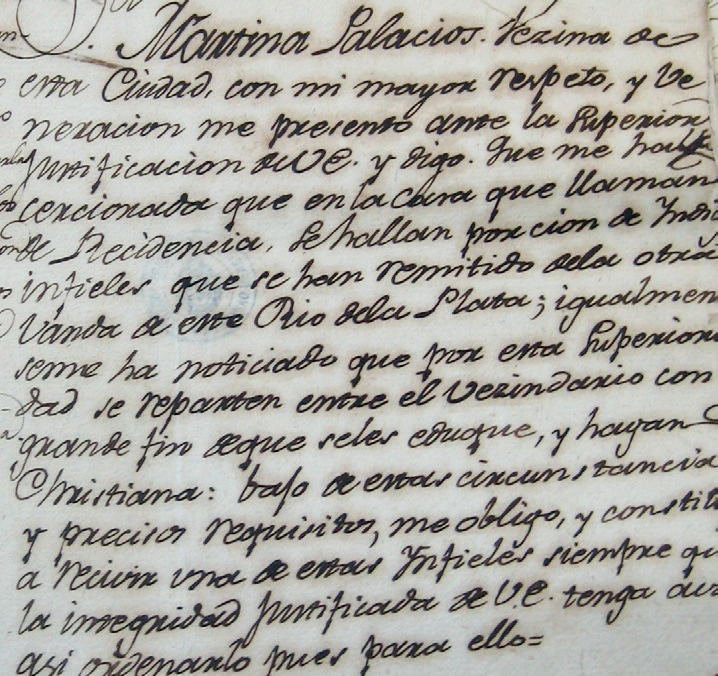 Martina Palacios. Vezina de
esta Ciudad, con mi mayor respeto, y Ve
neracion me presento ante la Superior
Justificacion de VE. y digo. Que me
cercionada que en la Casa que llaman
de Recidencia, se hallan porcion de Indi
infieles que se han remitido dela otra
Vanda de este Rio dela Plata; igualmen
seme ha noticiado que por esta Superiori
dad se reparten entre el Vezindario con
grande fin deque seles eduque, y hagan
Christiana: bajo de estas circunstancia
y precisos requisitos, me obligo, y constit
a recivir una de estas Ynfieles siempre qu
la integridad Justificada de V.E. tenga
asi ordenarlo pues para ello=